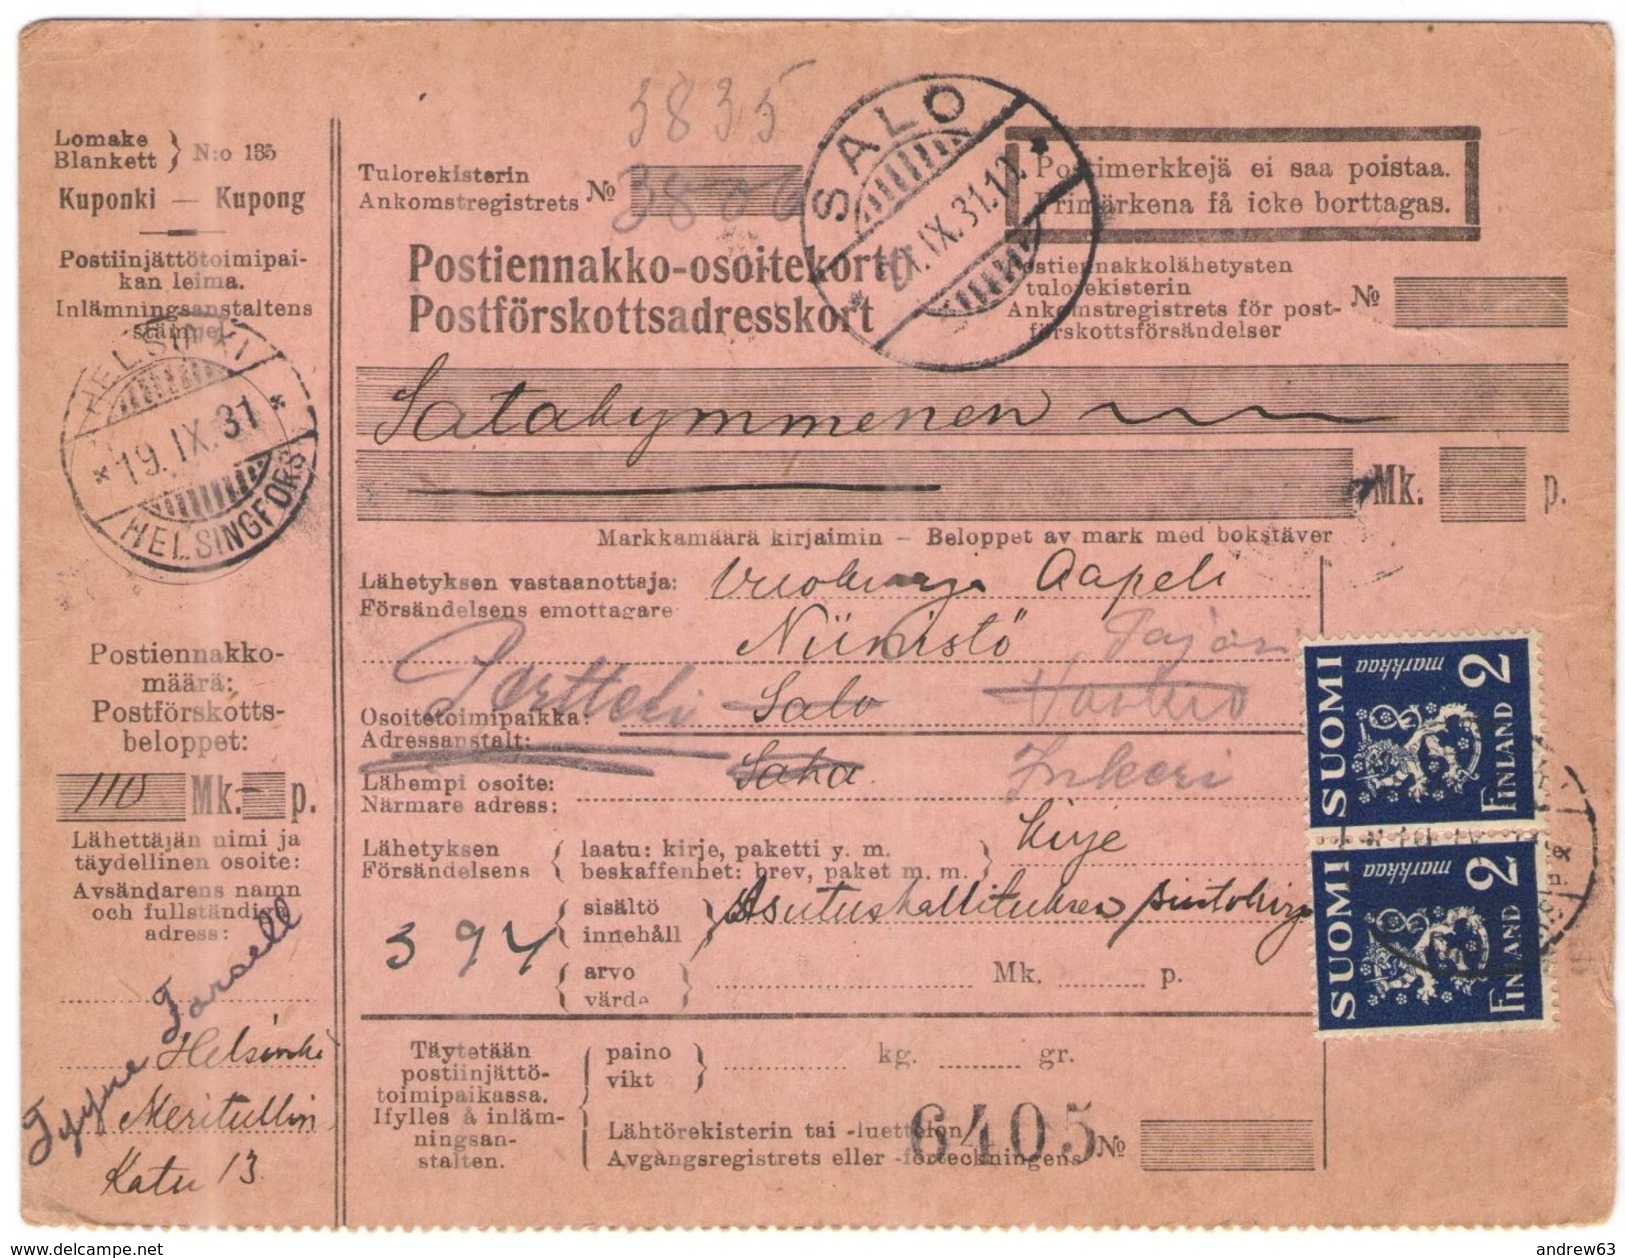 Lomake
Blankett } N:o 135
Kuponki — Kupong
Postiinjättötoimipai-
kan leima.
Inlämningsanstaltens
stämpel
HELSINKI
* 19. IX. 31 *
HELSINGFORS
Postiennakko-
määrä:
Postförskotts-
beloppet:
110 Mk. — p.
Lähettäjän nimi ja
täydellinen osoite:
Avsändarens namn
och fullständiga
adress:
Helsinki
Meritullin
Katu 13.
3835
Tulorekisterin
Ankomstregistrets № 3806
SALO
IX.31.12 *
Postimerkkejä ei saa poistaa.
Frimärkena få icke borttagas.
Postiennakko-osoitekortti
Postförskottsadresskort
Postiennakkolähetysten
tulorekisterin
Ankomstregistrets för post-
förskottsförsändelser №
Satakymmenen
Mk. p.
Markkamäärä kirjaimin — Beloppet av mark med bokstäver
Lähetyksen vastaanottaja: Aapeli
Försändelsens emottagare:
Niinistö
Pertteli Salo
Osoitetoimipaikka:
Adressanstalt:
Lähempi osoite: Inkeri
Närmare adress:
Lähetyksen { laatu: kirje, paketti y. m. } Kirje
Försändelsens { beskaffenhet: brev, paket m. m. }
394 { sisältö
innehåll } Asutushallituksen
{ arvo
värde } Mk. p.
Täytetään
postiinjättö-
toimipaikassa.
Ifylles å inläm-
ningsan-
stalten.
{ paino
vikt } kg. gr.
Lähtörekisterin tai -luettelon
Avgångsregistrets eller -förteckningens №
6405
SUOMI
markkaa
2
FINLAND
SUOMI
markkaa
2
FINLAND
andrew63